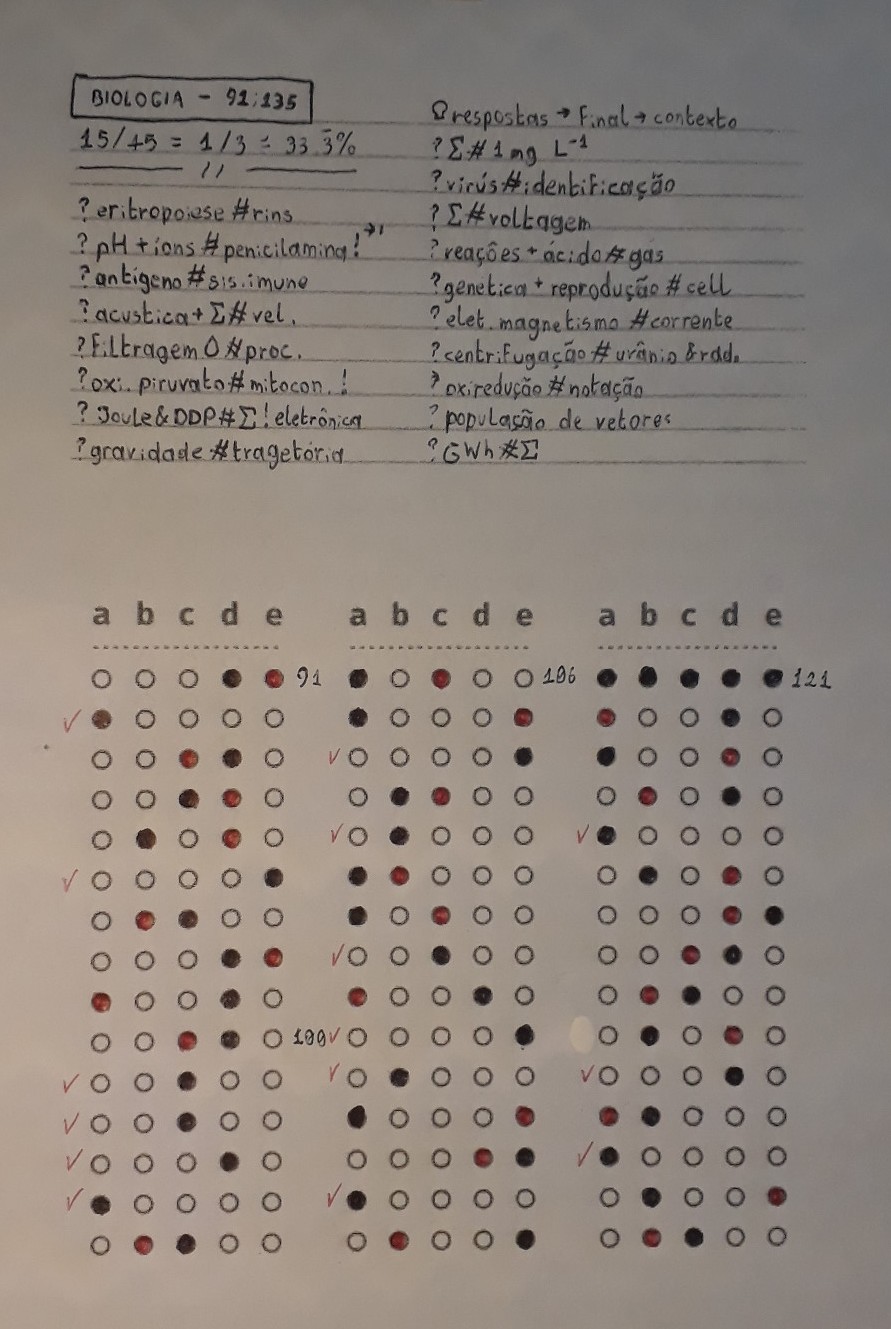 BIOLOGIA - 91;135
15/45 = 1/3 = 33.3%
//
?eritropoiese #rins
?pH+íons #penicilamina!→'
?antígeno #sis.imune
?acustica+Σ#vel.
?Filtragem O #proc.
?oxi. piruvato#mitocon.!
?Joule&DDP#Σ!eletrônica
?gravidade #tragetória
Ωrespostas → Final → contexto
?Σ#1mg L⁻¹
?virús#identificação
?Σ#voltagem
?reações+ácido#gás
?genética+reprodução #cell
?elet.magnetismo #corrente
?centrifugação#urânio &rdd.
?oxiredução #notação
?população de vetores
?GWh#Σ
a b c d e a b c d e a b c d e
91 106 121
100